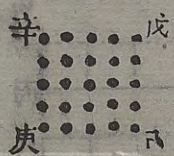 辛 戊
庚 己